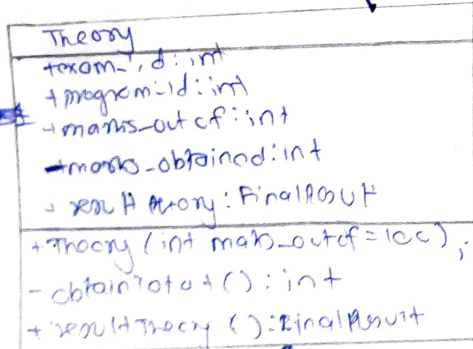 Theory
+exam_id: int
+ program_id: int
+ marks_out of: int
+marks_obtained: int
theory: FinalResult
+ Theory (int marks_out of = 100);
- obtain Total (): int
+ result Theory (): FinalResult